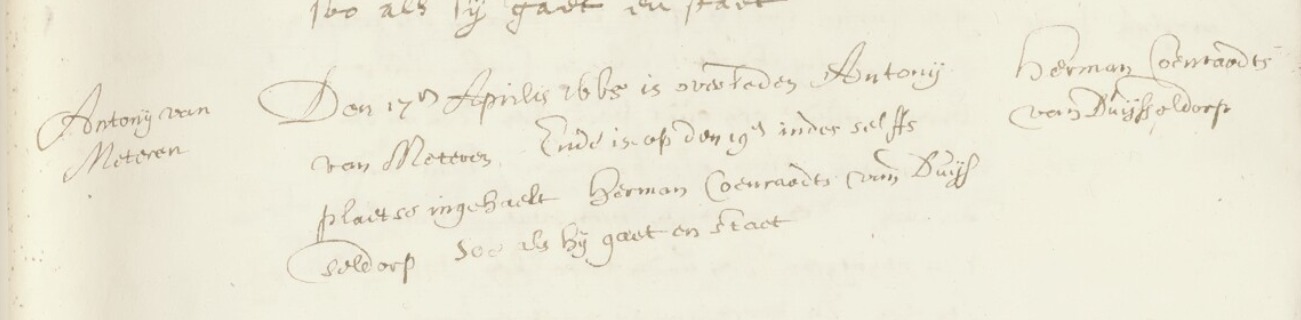 soo als hij gaet en staet
Antonij van
Meteren
Den 17en Aprilis 1665 is overleden Antonij
van Meteren Ende is op den 19en in des selffs
plaetse ingehaelt Herman Coenraadts van Duijs
seldorp soo als hij gaet en staet
Herman Coenraadts
van Duijsseldorp